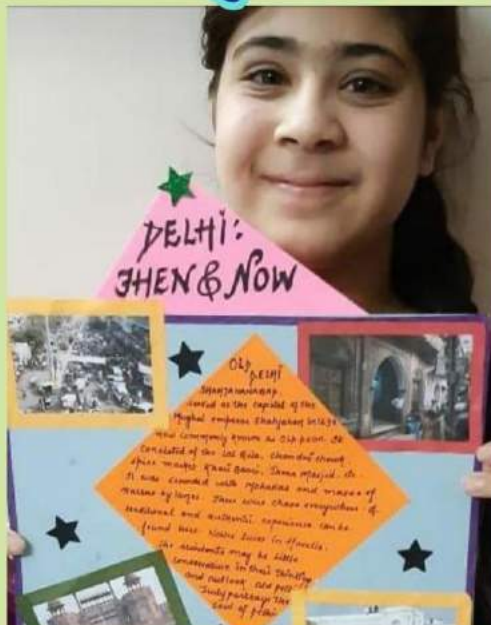 DELHI:
THEN & NOW
Old
DELHI
SHAHJAHANABAD,
served as the capital of the
Mughal emperor Shahjahan in
and commonly known as Old Delhi. It
consisted of the Lal Qila, Chandni Chowk,
spice market Khari Baoli, Jama Masjid, etc.
It was crowded with Mohallas and mazes of
narrow by lanes. There was chaos everywhere. A
traditional and authentic experience can be
found here. Nobles lives in Havelis.
The residents may be little
conservative in their thinking
and outlook. Old
Truly portrays the
soul of Delhi